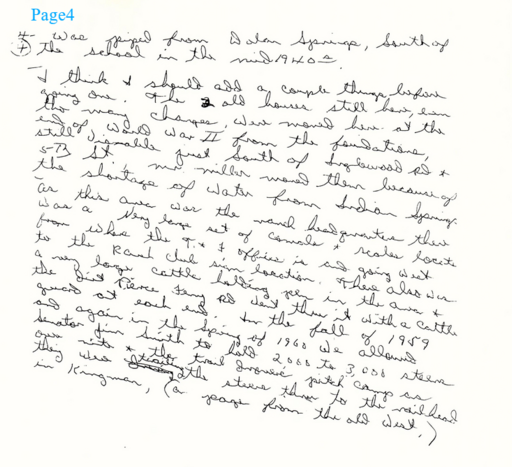 Page4
was piped from Dolan Springs, South of
the school in the mid 1940s.
I think I should add a couple things before
going on. The 2 old houses still here, even
tho many changes, were moved here at the
end of World War II from the foundations,
still visible just South of Inglewood Rd &
5-73 St. mr miller moved them because of
the shortage of water from Indian Springs.
as this area was the ranch headquarters there
was a very large set of corrals & scales locate
from where the office is and going West
to the Ranch Club sign location. There also was
a very large cattle holding pen in the area &
the Dirt Pierce Ferry Rd went thru it with a cattle
guard at each end. In the fall of 1959
and again in the Spring of 1960 we allowed
Senator Jim Smith to hold 2000 to 3,000 steers
over nite & the trail drovers pitch camp as
they were the steers thru to the railhead
in Kingman, (a page from the old West.)